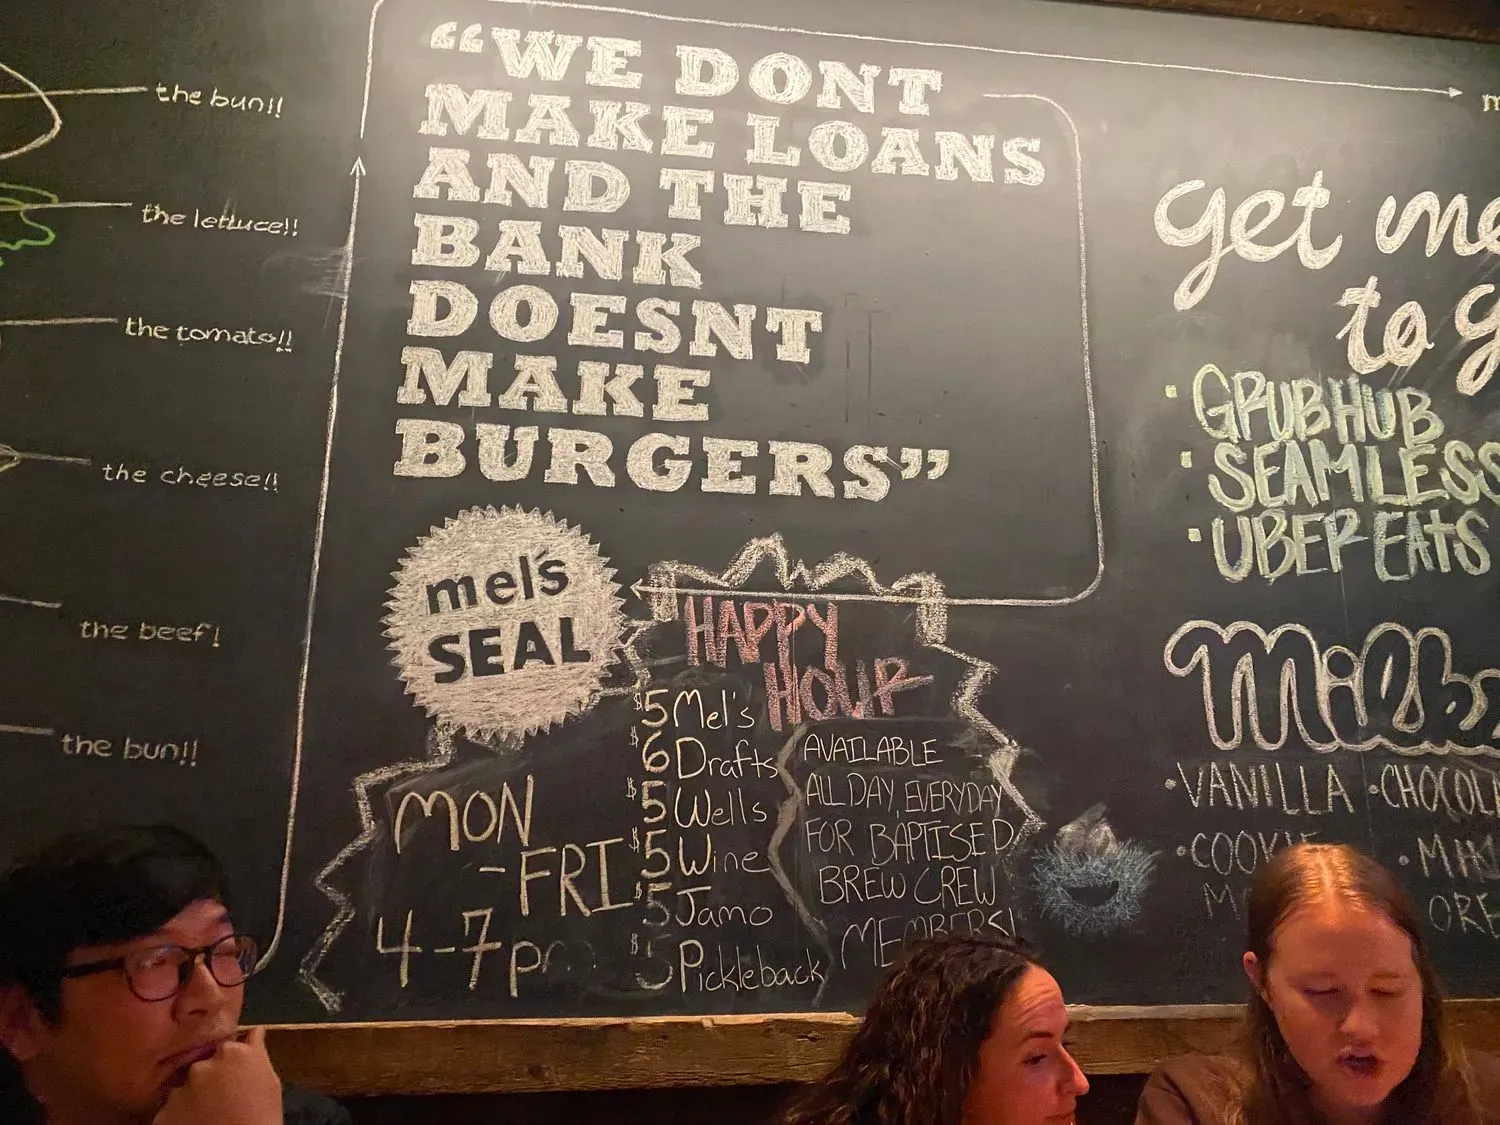 the bun!!
the lettuce!!
the tomato!!
the cheese!!
the beef!
the bun!!
“WE DONT
MAKE LOANS
AND THE
BANK
DOESNT
MAKE
BURGERS”
mel's
SEAL
MON
-FRI
4-7p
HAPPY
HOUR
$5 Mel's
$6 Drafts
$5 Wells
$5 Wine
$5 Jamo
$5 Pickleback
AVAILABLE
ALL DAY, EVERYDAY
FOR BAPTISED
BREW CREW
MEMBERS!
get
to
• GRUBHUB
• SEAMLESS
• UBER EATS
• VANILLA • CHOCOL